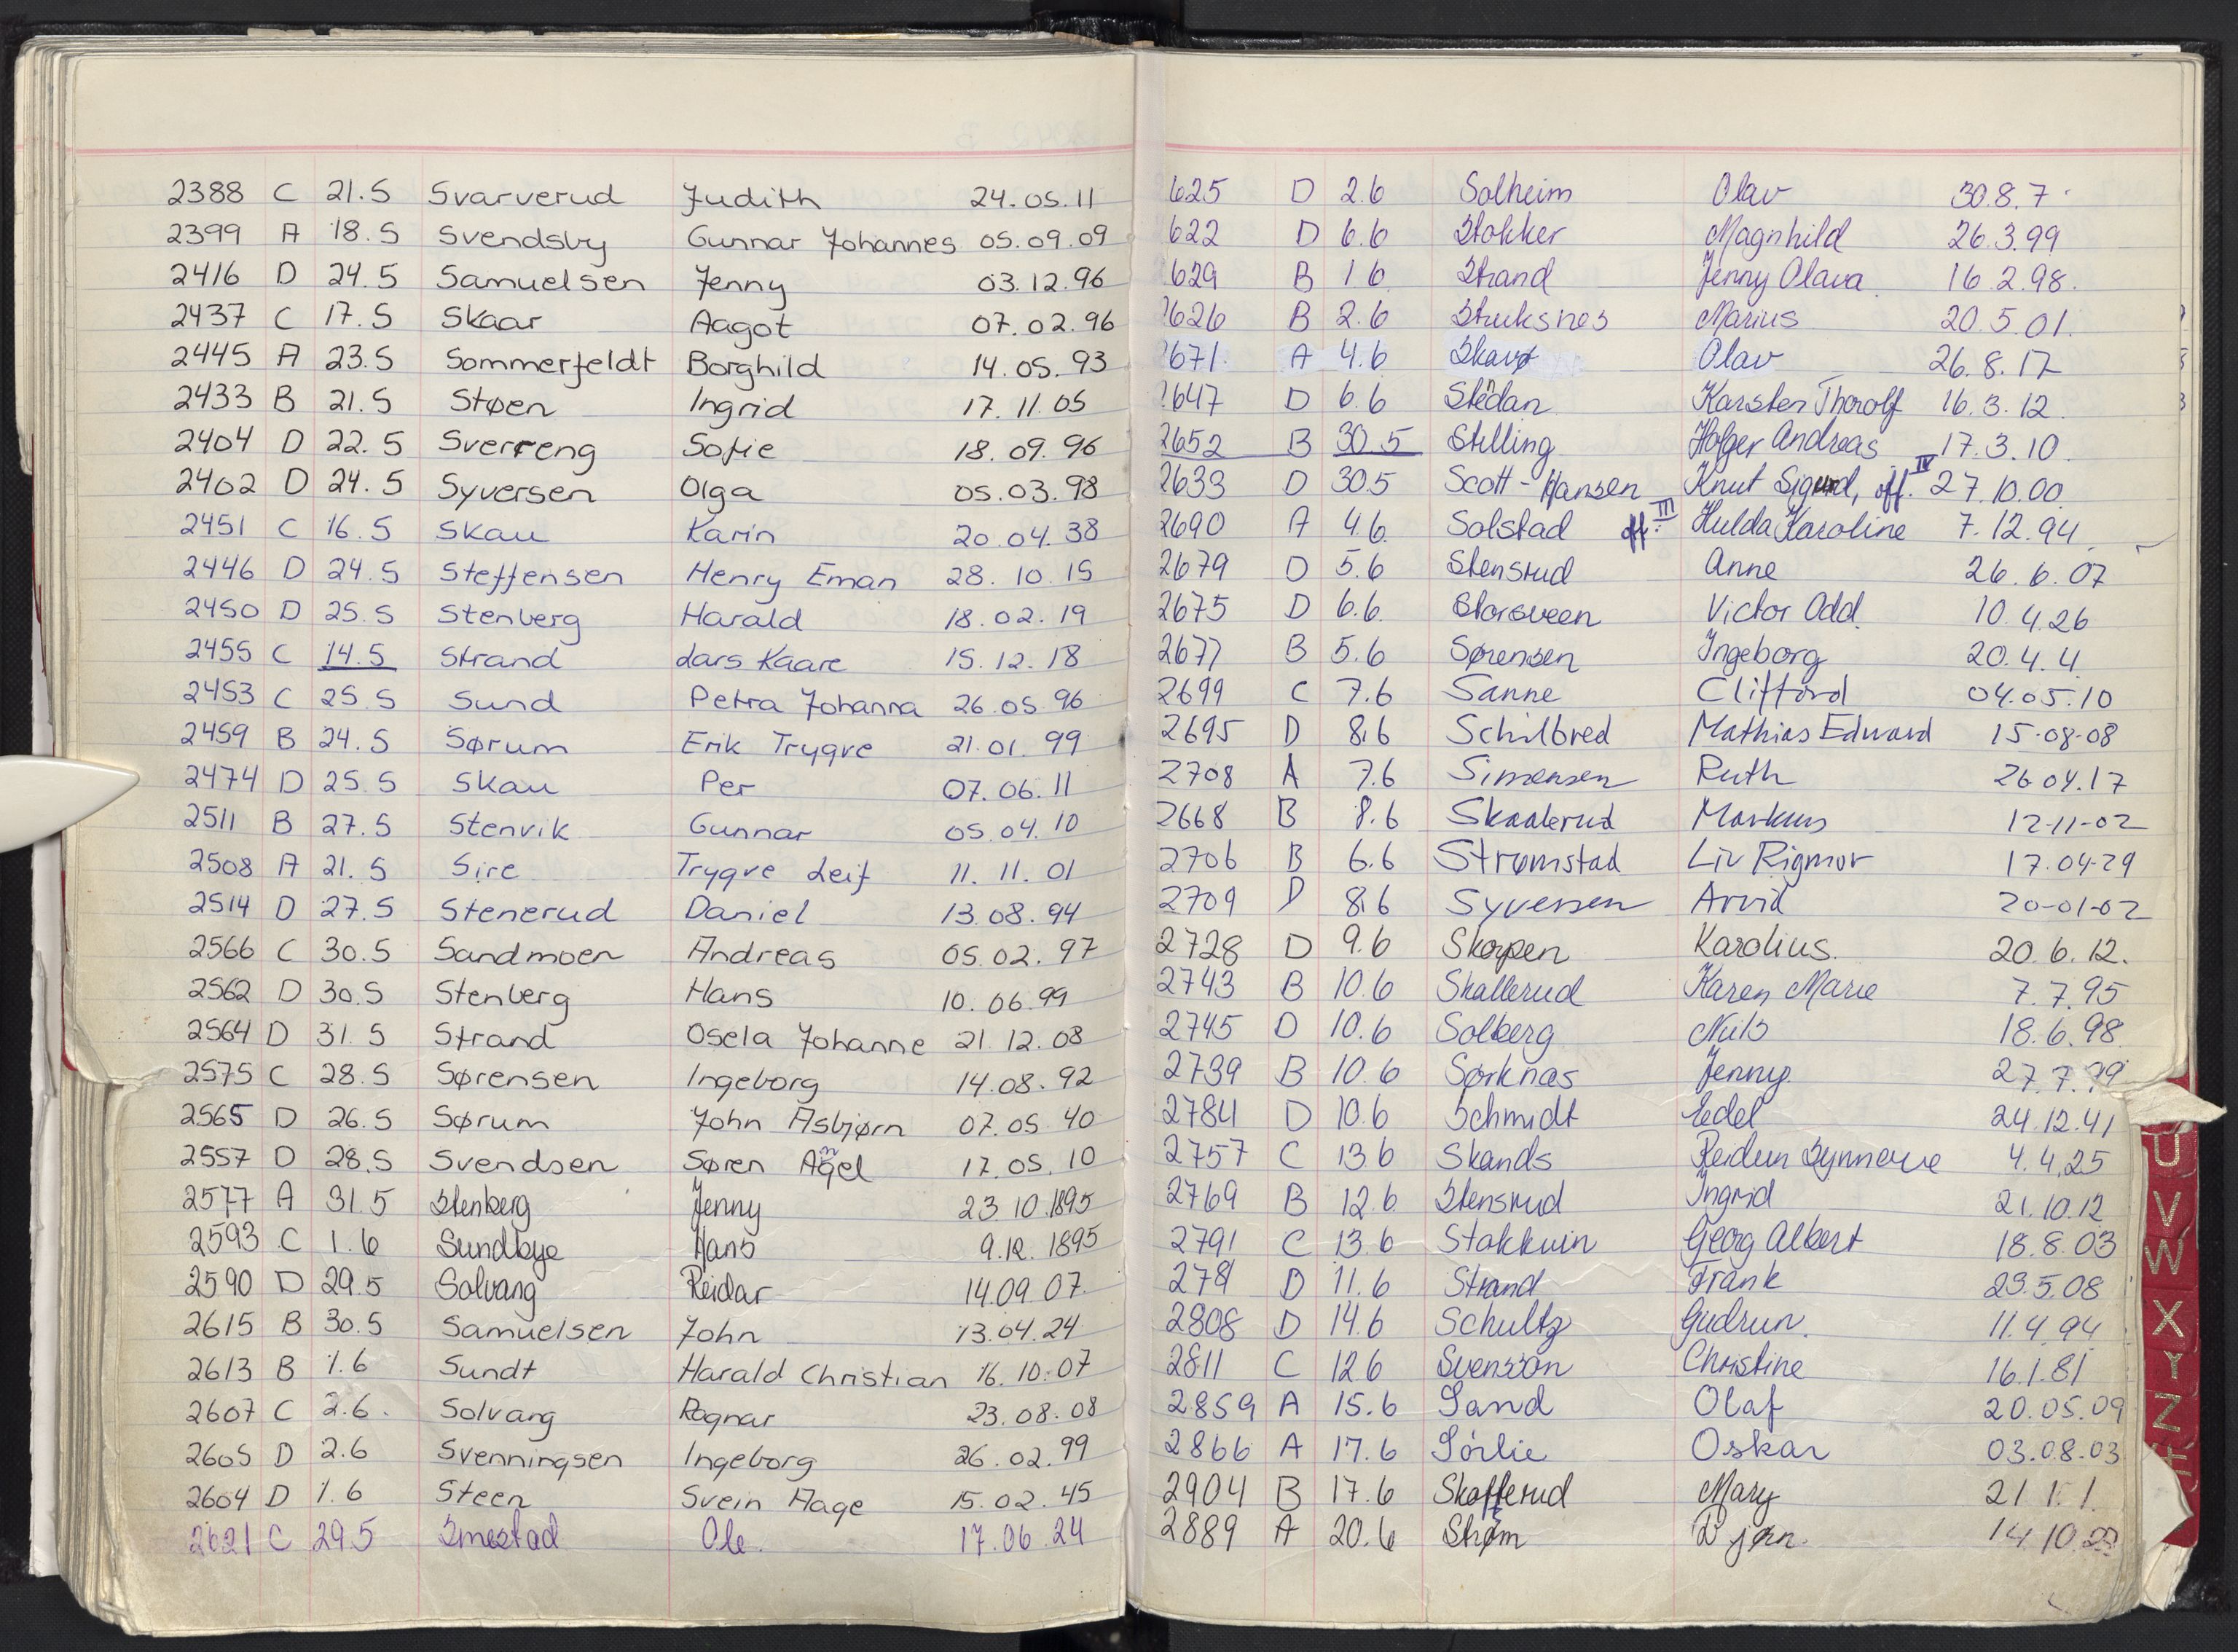 2388 C 21.5 Svarverud Judith 24.05.11
2399 A 18.5 Svendsby Gunnar Johannes 05.09.09
2416 D 24.5 Samuelsen Jenny 03.12.96
2437 C 17.5 Skaar Aagot 07.02.96
2445 A 23.5 Sommerfeldt Borghild 14.05.93
2433 B 21.5 Støen Ingrid 17.11.05
2404 D 22.5 Sverreng Sofie 18.09.96
2402 D 24.5 Syversen Olga 05.03.98
2451 C 16.5 Skau Karin 20.04.38
2446 D 24.5 Steffensen Henry Eman 28.10.15
2450 D 25.5 Stenberg Harald 18.02.19
2455 C 14.5 Strand Lars Kaare 15.12.18
2453 C 25.5 Sund Petra Johanna 26.05.96
2459 B 24.5 Sørum Erik Trygve 21.01.99
2474 D 25.5 Skau Per 07.06.11
2511 B 27.5 Stenvik Gunnar 05.04.10
2508 A 21.5 Sire Trygve Leif 11.11.01
2514 D 27.5 Stenerud Daniel 13.08.94
2566 C 30.5 Sandmoen Andreas 05.02.97
2562 D 30.5 Stenberg Hans 10.06.99
2564 D 31.5 Strand Osela Johanne 21.12.08
2575 C 28.5 Sørensen Ingeborg 14.08.92
2565 D 26.5 Sørum John Asbjørn 07.05 40
2557 D 28.5 Svendsen Søren 17.05.10
2577 A 31.5 Stenberg Jenny 23.10.1895
2593 C 1.6 Sundbye Hans 9.12.1895
2590 D 29.5 Solvang Reidar 14.09.07.
2615 B 30.5 Samuelsen John 13.04.24
2613 B 1.6 Sundt Harald Christian 16.10.07
2607 C 2.6. Solvang Ragnar 23.08.08
2605 D 2.6 Svenningsen Ingeborg 26.02.99
2604 D 1.6 Steen Svein Aage 15.02.45
2621 C 29.5 Smestad Ole 17.06.24
625 D 2.6 Solheim Olav 30.8.7
622 D 6.6 Stokker Magnhild 26.3.99
629 B 1 6 Strand Jenny Olava 16.2.98.
626 B 2.6 Struksnes Marius 20.5.01.
671 A 4.6 Olav 26.8.17
647 D 6.6 Karsten Thorolf 16.3.12
2652 B 30.5 Stilling Holger Andreas 17.3.10.
2633 D 30.5 Scott-Hansen Knut Sigurd, off. IV 27.10.00
2690 A 4.6. Solstad off. III Hulda Karoline 7.12.94
2679 D 5.6 Stensrud Anne 26.6.07
2675 D 6.6. Storsveen Victor Odd 10.4.26
2677 B 5.6 Sørensen Ingeborg 20.4.4
2699 C 7.6 Sanne Clifford 04.05.10
2695 D 8.6 Schilbred Mathias Edward 15-08-08
2708 A 7.6 Simensen Ruth 26.04.17
2668 B 8.6 Skaalerud Markus 12-11-02
2706 B 6.6 Strømstad Liv Rigmor 17.04-29
2709 D 8.6 Syversen Arvid 20-01-02
2728 D 9.6 Skorpen Karolius. 20.6.12.
2743 B 10.6 Skallerud Karen Marie 7.7.95
2745 D 10.6 Solberg Nils 18.6.98
2739 B 10.6 Sørknæs Jenny 27.7.99
2784 D 10.6 Schmidt Edel 24.12.41
2757 C 13.6 Skands Reidun Synnøve 4.4.25
2769 B 12.6 Stensrud Ingrid 21.10.12
2791 C 13.6 Stakkvin Georg Albert 18.8.03
D 11.6 Strand Frank 23.5.08
2808 D 14.6 Schultz Gudrun 11.4.94
2811 C 12.6 Svensson Christine 16.1.81
2859 A 15.6 Sand Olaf 20.05.09
2866 A 17.6 Sörlie Oskar 03.08.03
2904 B 17.6 Mary 21.1.1.
2889 A 20.6 Strøm Bjørn 14.10.
U
V
W
X
Y
Z